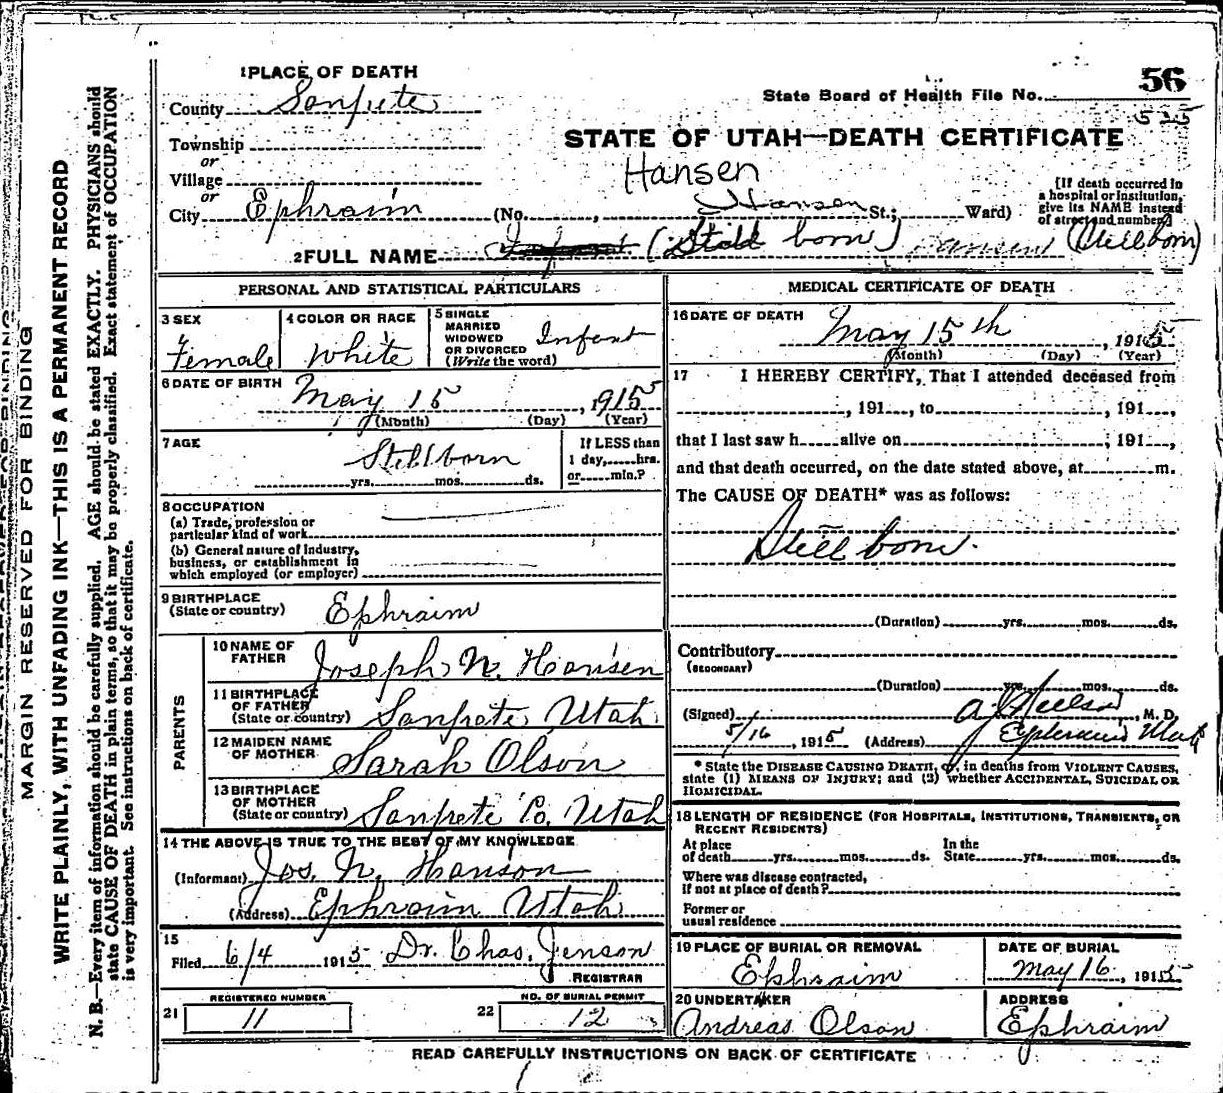 56
1 PLACE OF DEATH
County Sanpete
State Board of Health File No.
525
Township
or
Village
or
City Ephraim
STATE OF UTAH—DEATH CERTIFICATE
Hansen
(No. , Hansen St.; Ward)
[If death occurred in a hospital or institution, give its NAME instead of street and number.]
2 FULL NAME Infant (Still born) Hansen (Stillborn)
PERSONAL AND STATISTICAL PARTICULARS
3 SEX
Female
4 COLOR OR RACE
White
5 SINGLE
MARRIED
WIDOWED
OR DIVORCED
(Write the word)
Infant
6 DATE OF BIRTH
May 15, 1915
(Month) (Day) (Year)
7 AGE
Stillborn
yrs. mos. ds.
If LESS than
1 day, hrs.
or min.?
8 OCCUPATION
(a) Trade, profession or
particular kind of work
(b) General nature of industry,
business, or establishment in
which employed (or employer)
9 BIRTHPLACE
(State or country)
Ephraim
PARENTS
10 NAME OF
FATHER
Joseph N. Hansen
11 BIRTHPLACE
OF FATHER
(State or country)
Sanpete, Utah
12 MAIDEN NAME
OF MOTHER
Sarah Olson
13 BIRTHPLACE
OF MOTHER
(State or country)
Sanpete Co, Utah
14 THE ABOVE IS TRUE TO THE BEST OF MY KNOWLEDGE
(Informant) Jos. N. Hanson
(Address) Ephraim Utah
15
Filed 6/4 1915 Dr. Chas. Jenson
REGISTRAR
REGISTERED NUMBER
21 11
NO. OF BURIAL PERMIT
22 12
MEDICAL CERTIFICATE OF DEATH
16 DATE OF DEATH
May 15th, 1915
(Month) (Day) (Year)
17 I HEREBY CERTIFY, That I attended deceased from
, 191 , to , 191 ,
that I last saw h alive on , 191 ,
and that death occurred, on the date stated above, at m.
The CAUSE OF DEATH* was as follows:
Still born.
(Duration) yrs. mos. ds.
Contributory
(SECONDARY)
(Duration) yrs. mos. ds.
(Signed) A J Neilson, M. D.
5/16, 1915 (Address) Ephraim Utah
* State the DISEASE CAUSING DEATH, or, in deaths from VIOLENT CAUSES,
state (1) MEANS OF INJURY; and (2) whether ACCIDENTAL, SUICIDAL OR
HOMICIDAL.
18 LENGTH OF RESIDENCE (FOR HOSPITALS, INSTITUTIONS, TRANSIENTS, OR
RECENT RESIDENTS)
At place
of death yrs. mos. ds.
In the
State yrs. mos. ds.
Where was disease contracted,
if not at place of death?
Former or
usual residence
19 PLACE OF BURIAL OR REMOVAL
Ephraim
DATE OF BURIAL
May 16, 1915
20 UNDERTAKER
Andreas Olson
ADDRESS
Ephraim
READ CAREFULLY INSTRUCTIONS ON BACK OF CERTIFICATE
MARGIN RESERVED FOR BINDING
WRITE PLAINLY, WITH UNFADING INK—THIS IS A PERMANENT RECORD
N. B.—Every item of information should be carefully supplied. AGE should be stated EXACTLY. PHYSICIANS should
state CAUSE OF DEATH in plain terms, so that it may be properly classified. Exact statement of OCCUPATION
is very important. See instructions on back of certificate.